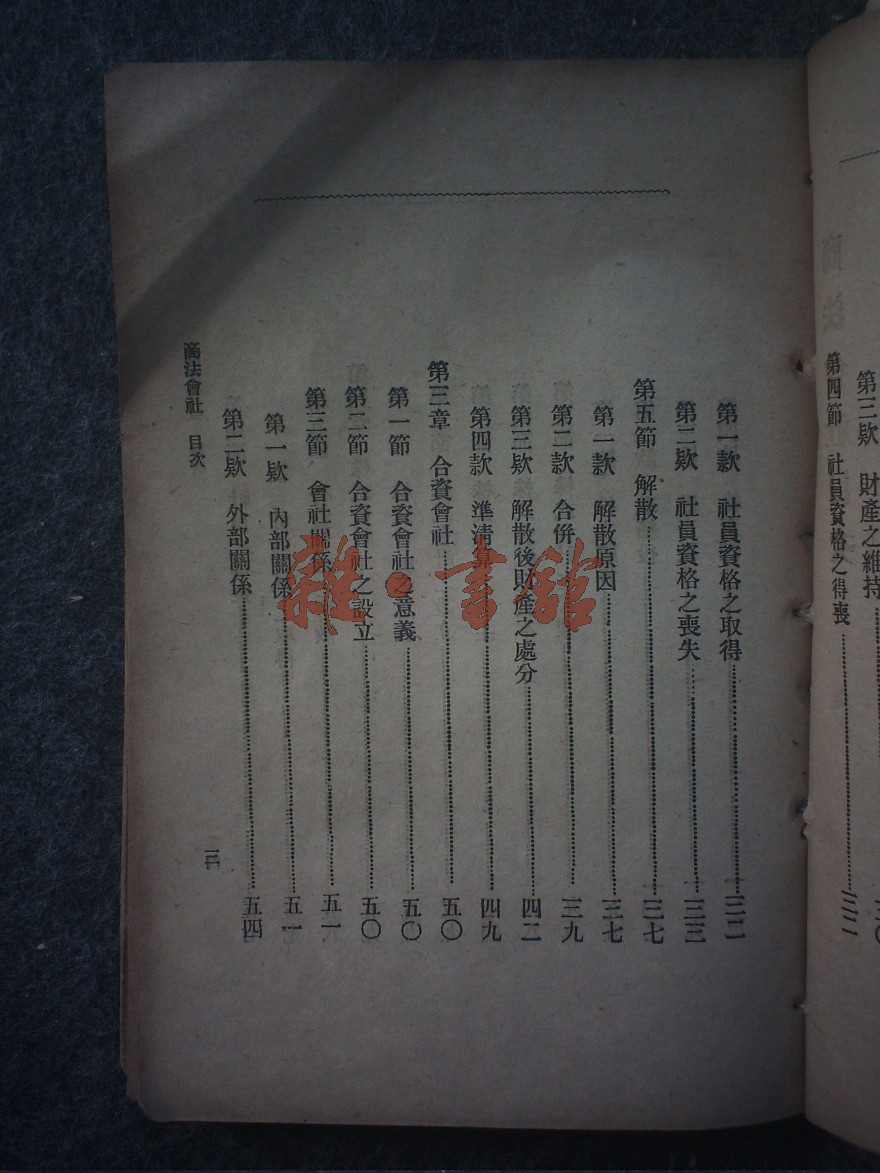 第三欵 財產之維持
第四節 社員資格之得喪……三二
第一款 社員資格之取得……三二
第二欵 社員資格之喪失……三三
第五節 解散……三七
第一款 解散原因……三七
第二款 合併……三九
第三欵 解散後財產之處分……四二
第四款 準清算……四九
第三章 合資會社……五〇
第一節 合資會社之意義……五〇
第二節 合資會社之設立……五〇
第三節 會社關係……五一
第一欵 內部關係……五一
第二欵 外部關係……五四
商法會社 目次
雜·書館